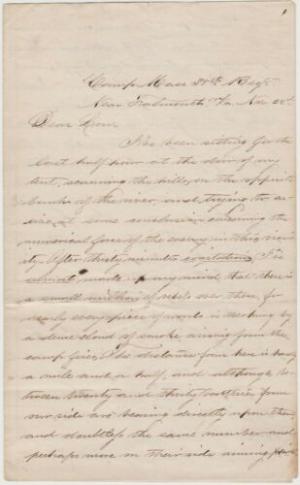 Camp Mass 35th Regt
Near Falmouth Va. Nov 22d
Dear Leon
I've been sitting for the
last half hour at the door of my
tent, scanning the hills on the opposite
banks of the river, and trying to ar-
rive at some conclusion concerning the
numerical force of the enemy in this vicin-
ity. After thirty minutes I've
made up my mind that there is
a small million of rebs over there, for
nearly every piece of woods is
a dense cloud of smoke arising from the
camp fires. The distance from here is hardly
a mile and a half, and although be-
tween twenty and thirty batteries from
our side are bearing directly upon them
and doubtless the same number and
perhaps more on their side aiming